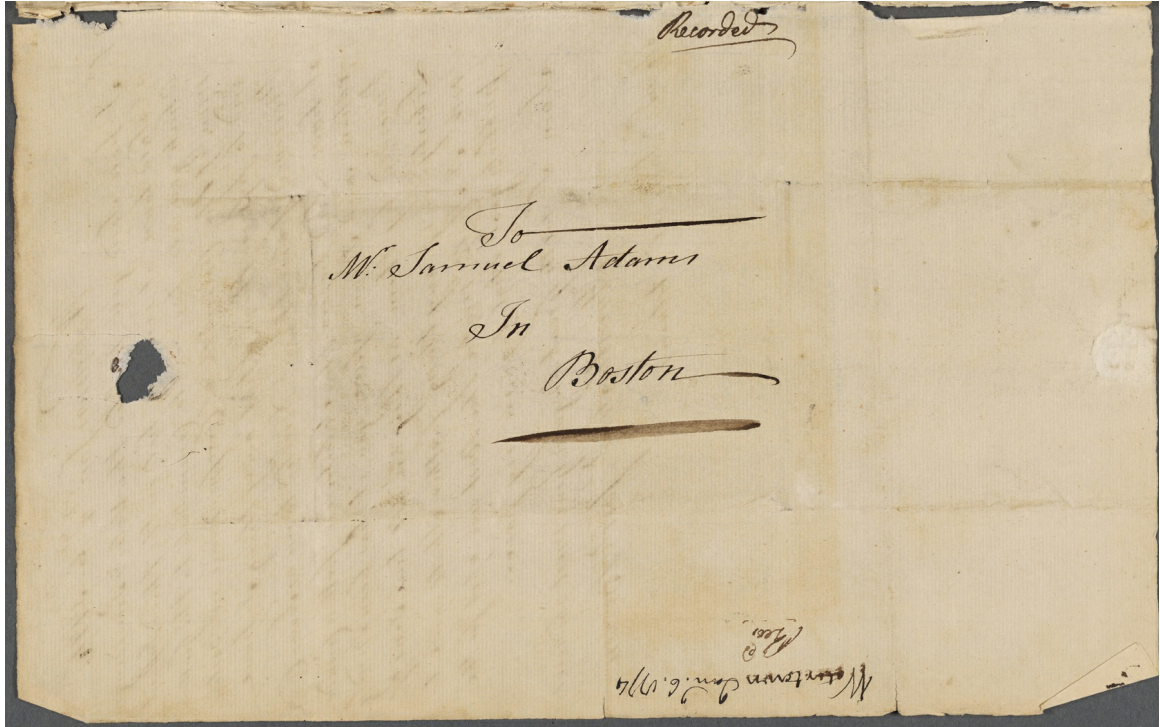 Recorded
To
Mr: Samuel Adams
In
Boston
Watertown Jan. 6. 1774